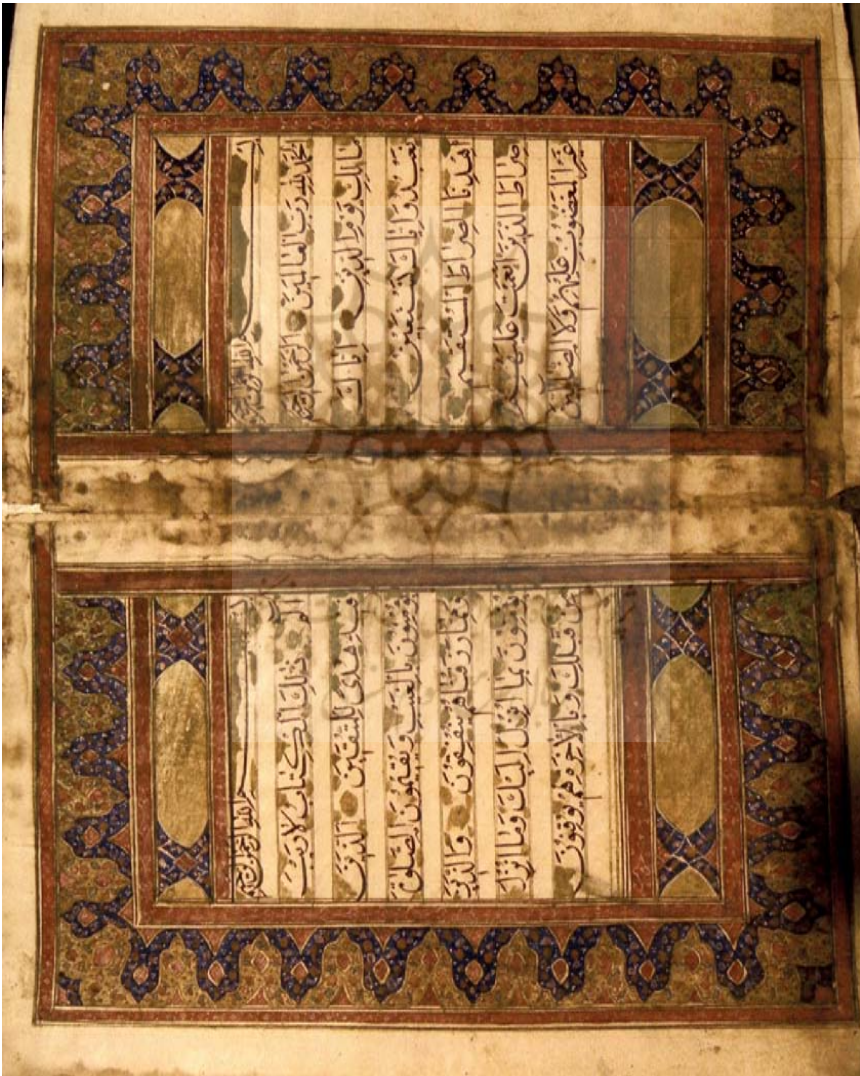 بسم الله الرحمن الرحيم
الحمد لله رب العالمين الرحمن الرحيم
مالك يوم الدين إياك
نعبد وإياك نستعين
اهدنا الصراط المستقيم
صراط الذين أنعمت عليهم
غير المغضوب عليهم ولا الضالين
بسم الله الرحمن الرحيم
الم ذلك الكتاب لا ريب
فيه هدى للمتقين الذين
يؤمنون بالغيب ويقيمون الصلوة
ومما رزقناهم ينفقون والذين
يؤمنون بما أنزل إليك وما أنزل
من قبلك وبالآخرة هم يوقنون